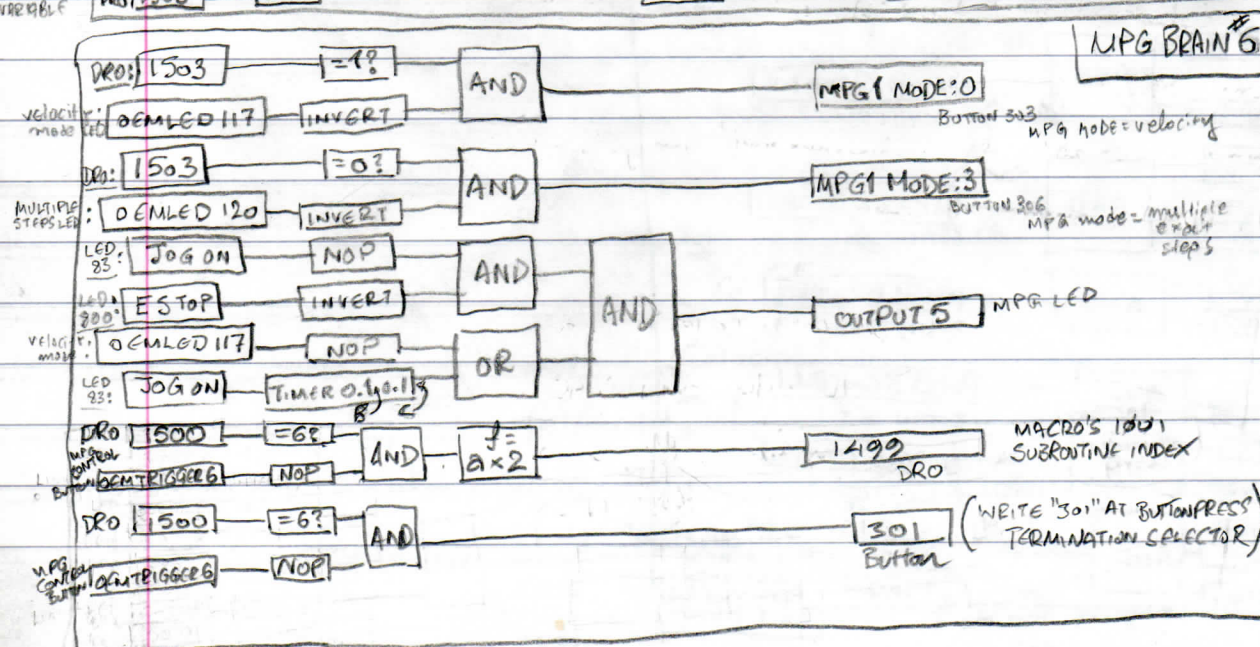 VARIABLE
MPG BRAIN #6
DRO: 1503 =1? AND MPG1 MODE:0
BUTTON 303
MPG MODE = velocity
velocity mode LED: OEMLED 117 INVERT
DRO: 1503 =0? AND MPG1 MODE:3
BUTTON 306
MPG mode = multiple exact steps
MULTIPLE STEPS LED: OEMLED 120 INVERT
LED 83: JOG ON NOP AND
LED: 800: ESTOP INVERT AND OUTPUT 5 MPG LED
velocity mode: OEMLED 117 NOP OR
LED 83: JOG ON TIMER 0.1,0.1
B C
DRO 1500 =6? AND f= a×2 1499 MACRO'S 1001 SUBROUTINE INDEX
DRO
MPG CONTROL BUTTON OEMTRIGGER6 NOP
DRO 1500 =6? AND 301 (WRITE "301" AT BUTTONPRESS TERMINATION SELECTOR)
Button
MPG CONTROL BUTTON OEMTRIGGER6 NOP